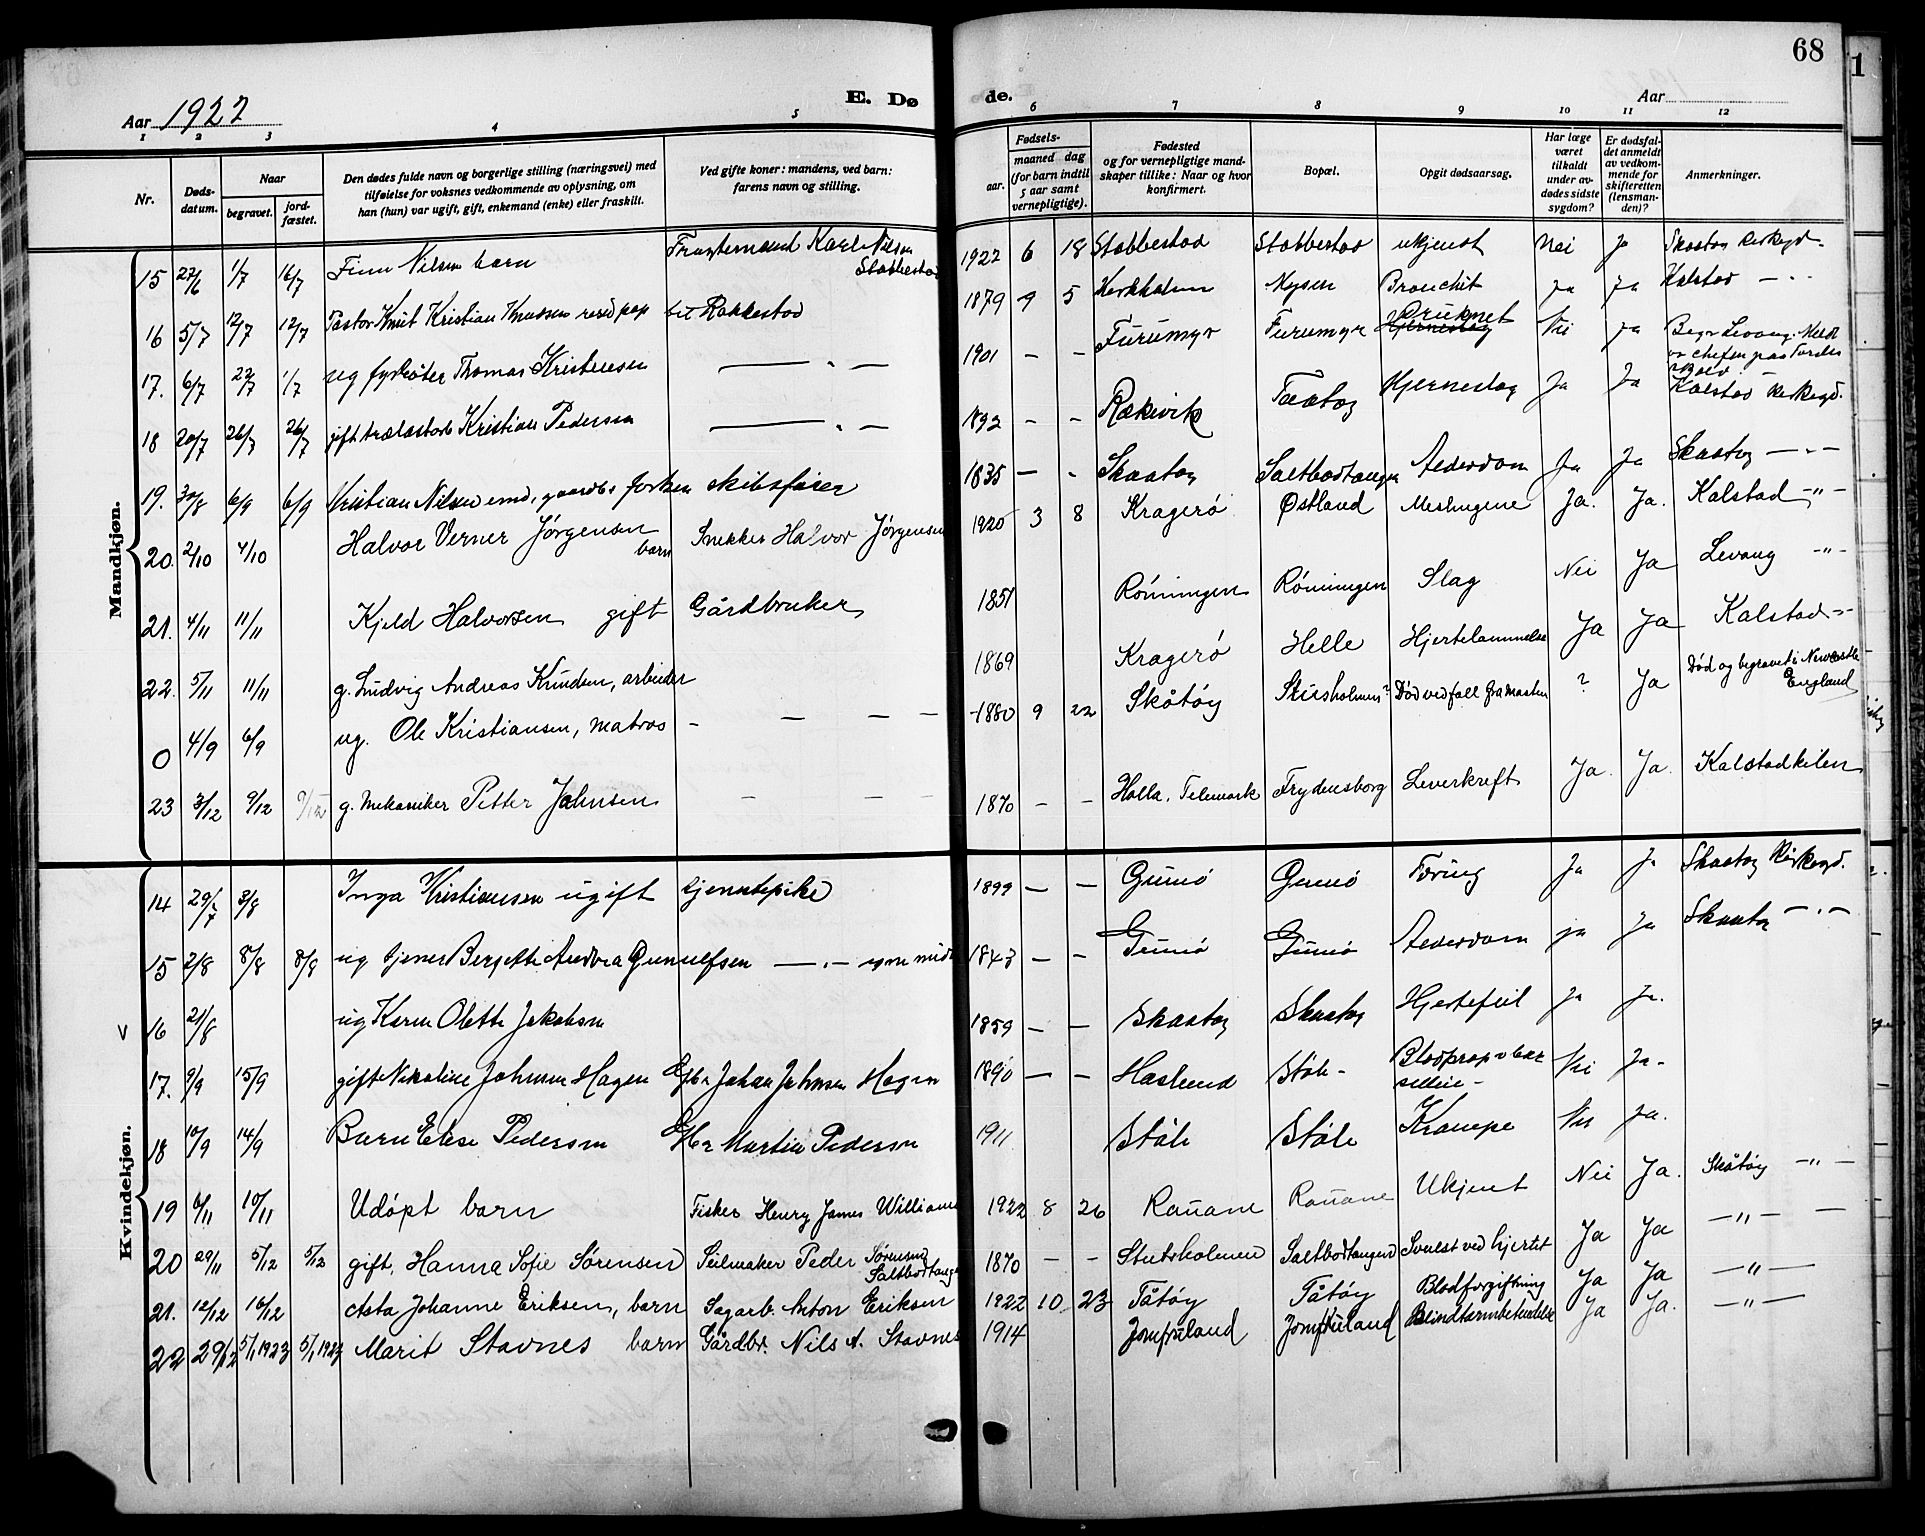 68
1
Aar 1922
E. Dø
de.
Aar
1 2 3 4 5 6 7 8 9 10 11 12
Nr.
Døds-
datum.
Naar
begravet.
jord-
fæstet.
Den dødes fulde navn og borgerlige stilling (næringsvei) med
tilføielse for voksnes vedkommende av oplysning, om
han (hun) var ugift, gift, enkemand (enke) eller fraskilt.
Ved gifte koner: mandens, ved barn:
farens navn og stilling.
Fødsels-
aar.
maaned dag
(for barn indtil
5 aar samt
vernepligtige).
Fødested
og for vernepligtige mand-
skaper tillike: Naar og hvor
konfirmert.
Bopæl.
Opgit dødsaarsag.
Har læge
været
tilkaldt
under av-
dødes sidste
sygdom?
Er dødsfal-
det anmeldt
av vedkom-
mende for
skifteretten
(lensman-
den)?
Anmerkninger.
Mandkjøn.
15 27/6 1/7 16/7 Finn Nilsen barn Karl Nilsen Stabbestad 1922 6 18 Stabbestad Stabbestad ukjendt Nei Ja Skaatøy kirkegd.
16 5/7 12/7 12/7 Pastor Knut Kristian Knudsen res. kap til Rakkestad 1879 9 5 Mysen Bronchit ja ja Kalstad — " -
17. 6/7 22/7 1/7 ug fyrbøter Thomas Kristensen — " — 1901 - - Furumyr Furumyr Druknet Nei ja Begr. Levang.
18 20/7 26/7 26/7 gift Kristian Pedersen — " — 1892 - - Rækevik Taatøy Hjerneslag Ja Ja Kalstad kirkegd.
19. 30/8 6/9 6/9 Kristian Nilsen emd, gaardbr forhen skibsfører 1835 — - Skaatøy Saltbodtangen Alderdom Ja Ja Skaatøy — " —
20. 2/10 4/10 Halvor Verner Jørgensen barn Snekker Halvor Jørgensen 1920 3 8 Kragerø Østland Meslingene Ja. Ja. Kalstad — " —
21. 4/11 11/11 Kjeld Halvorsen gift Gårdbruker 1851 Rønningen Rønningen Slag Nei Ja Levang — " —
22. 5/11 11/11 g. Ludvig Andreas Knudsen, arbeider 1869 Kragerø Helle Hjertelammelse Ja Ja Kalstad — " -
0 4/9 6/9 ug. Ole Kristiansen, matros - — — — 1880 9 22 Skåtøy Død ved fall fra masten ? Ja Død og begravet i Newcastle England
23 3/12 9/12 9/12 g. mekaniker Petter Johnsen - — — 1870 - - Holla, Telemark Frydensborg Leverkreft Ja. Ja. Kalstadkilen
Kvindekjøn.
14 29/7 3/8 Inga Kristiansen ugift tjenestepike 1899 — — Gumø Gumø Tæring Ja Ja Skaatøy Kirkegd.
15 2/8 8/8 8/8 ug tjener Bergette Andrea Gunnulfsen — " — 1843 - - Gumø Gumø Alderdom ja ja Skaatøy — " —
v 16 21/8 ug Karen Olette Jakobsen 1859 — — Skaatøy Skaatøy Hjertefeil ja ja.
17. 9/9 15/9 gift Nikoline Johnsen Hagen Gbr Johan Johnsen Hagen 1890 — — Haslund Støle - Blodprop Nei Ja -
18 10/9 14/9 Barn Elise Pedersen Gbr Martin Pedersen 1911 Støle Støle Krampe Nei ja.
19 6/11 10/11 Udøpt barn Fisker Henry James Williams 1922 8 26 Rauane Rauane Ukjent Nei Ja. Skåtøy — " —
20 29/11 5/12 5/12 gift. Hanna Sofie Sørensen Seilmaker Peder Sørensen Saltbodtangen 1870 — - Stutsholmen Saltbodtangen Svulst ved hjertet Ja Ja — " — —
21. 12/12 16/12 Asta Johanne Eriksen, barn Sagarb. Anton Eriksen 1922 10 23 Tåtøy Tåtøy Blodforgiftning Ja Ja — " —
22 29/12 5/1 1923 5/1 1923 Marit Stavnes barn Gårdbr. Nils A. Stavnes 1914 Jomfruland Jomfruland Blindtarmbetendelse Ja Ja. — " —